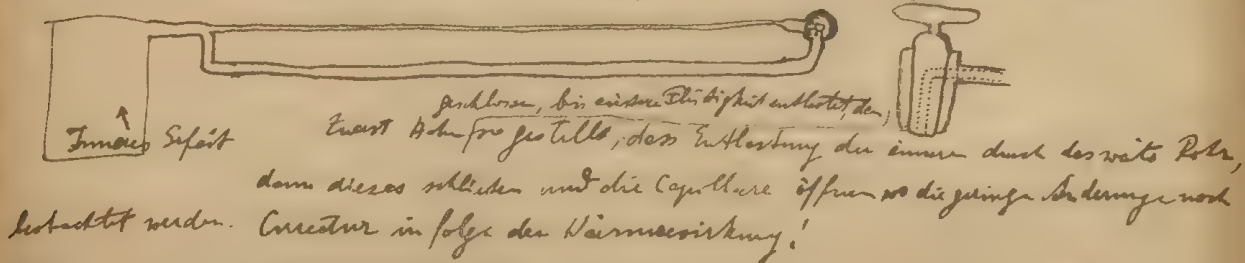 geschlossen, bis äussere Flüssigkeit entlastet, dann
Inneres Gefäss
Zuerst Hahn so gestellt, dass Entlastung der inneren durch das weite Rohr,
dann dieses schliessen und die Capillare öffnen wo die geringe Änderunge noch
beobachtet werden. Correctur in folge der Wärmewirkung!